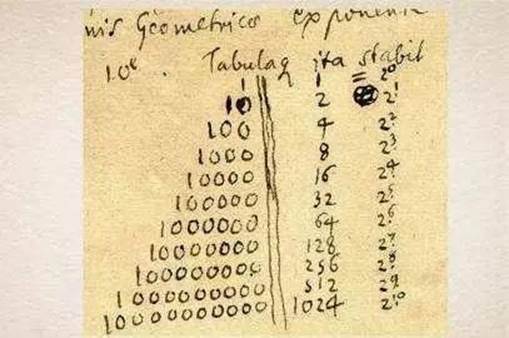 nis Geometrico
Tabulaq ita stabit
1 1 = 2⁰
10 2 2¹
100 4 2²
1000 8 2³
10000 16 2⁴
100000 32 2⁵
1000000 64 2⁶
10000000 128 2⁷
100000000 256 2⁸
1000000000 512 2⁹
10000000000 1024 2¹⁰